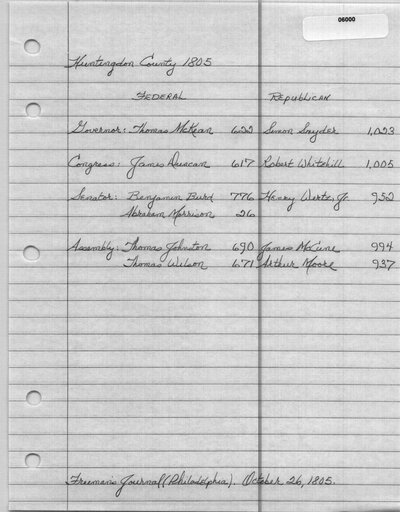 06000
Huntingdon County 1805
FEDERAL REPUBLICAN
Governor: Thomas McKean 622 Simon Snyder 1,023
Congress: James Duncan 617 Robert Whitehill 1,005
Senator: Benjamin Burd 776 Henry Wertz, Jr. 952
Abraham Morrison 26
Assembly: Thomas Johnston 690 James McCune 994
Thomas Wilson 671 Arthur Moore 937
Freeman's Journal (Philadelphia). October 26, 1805.